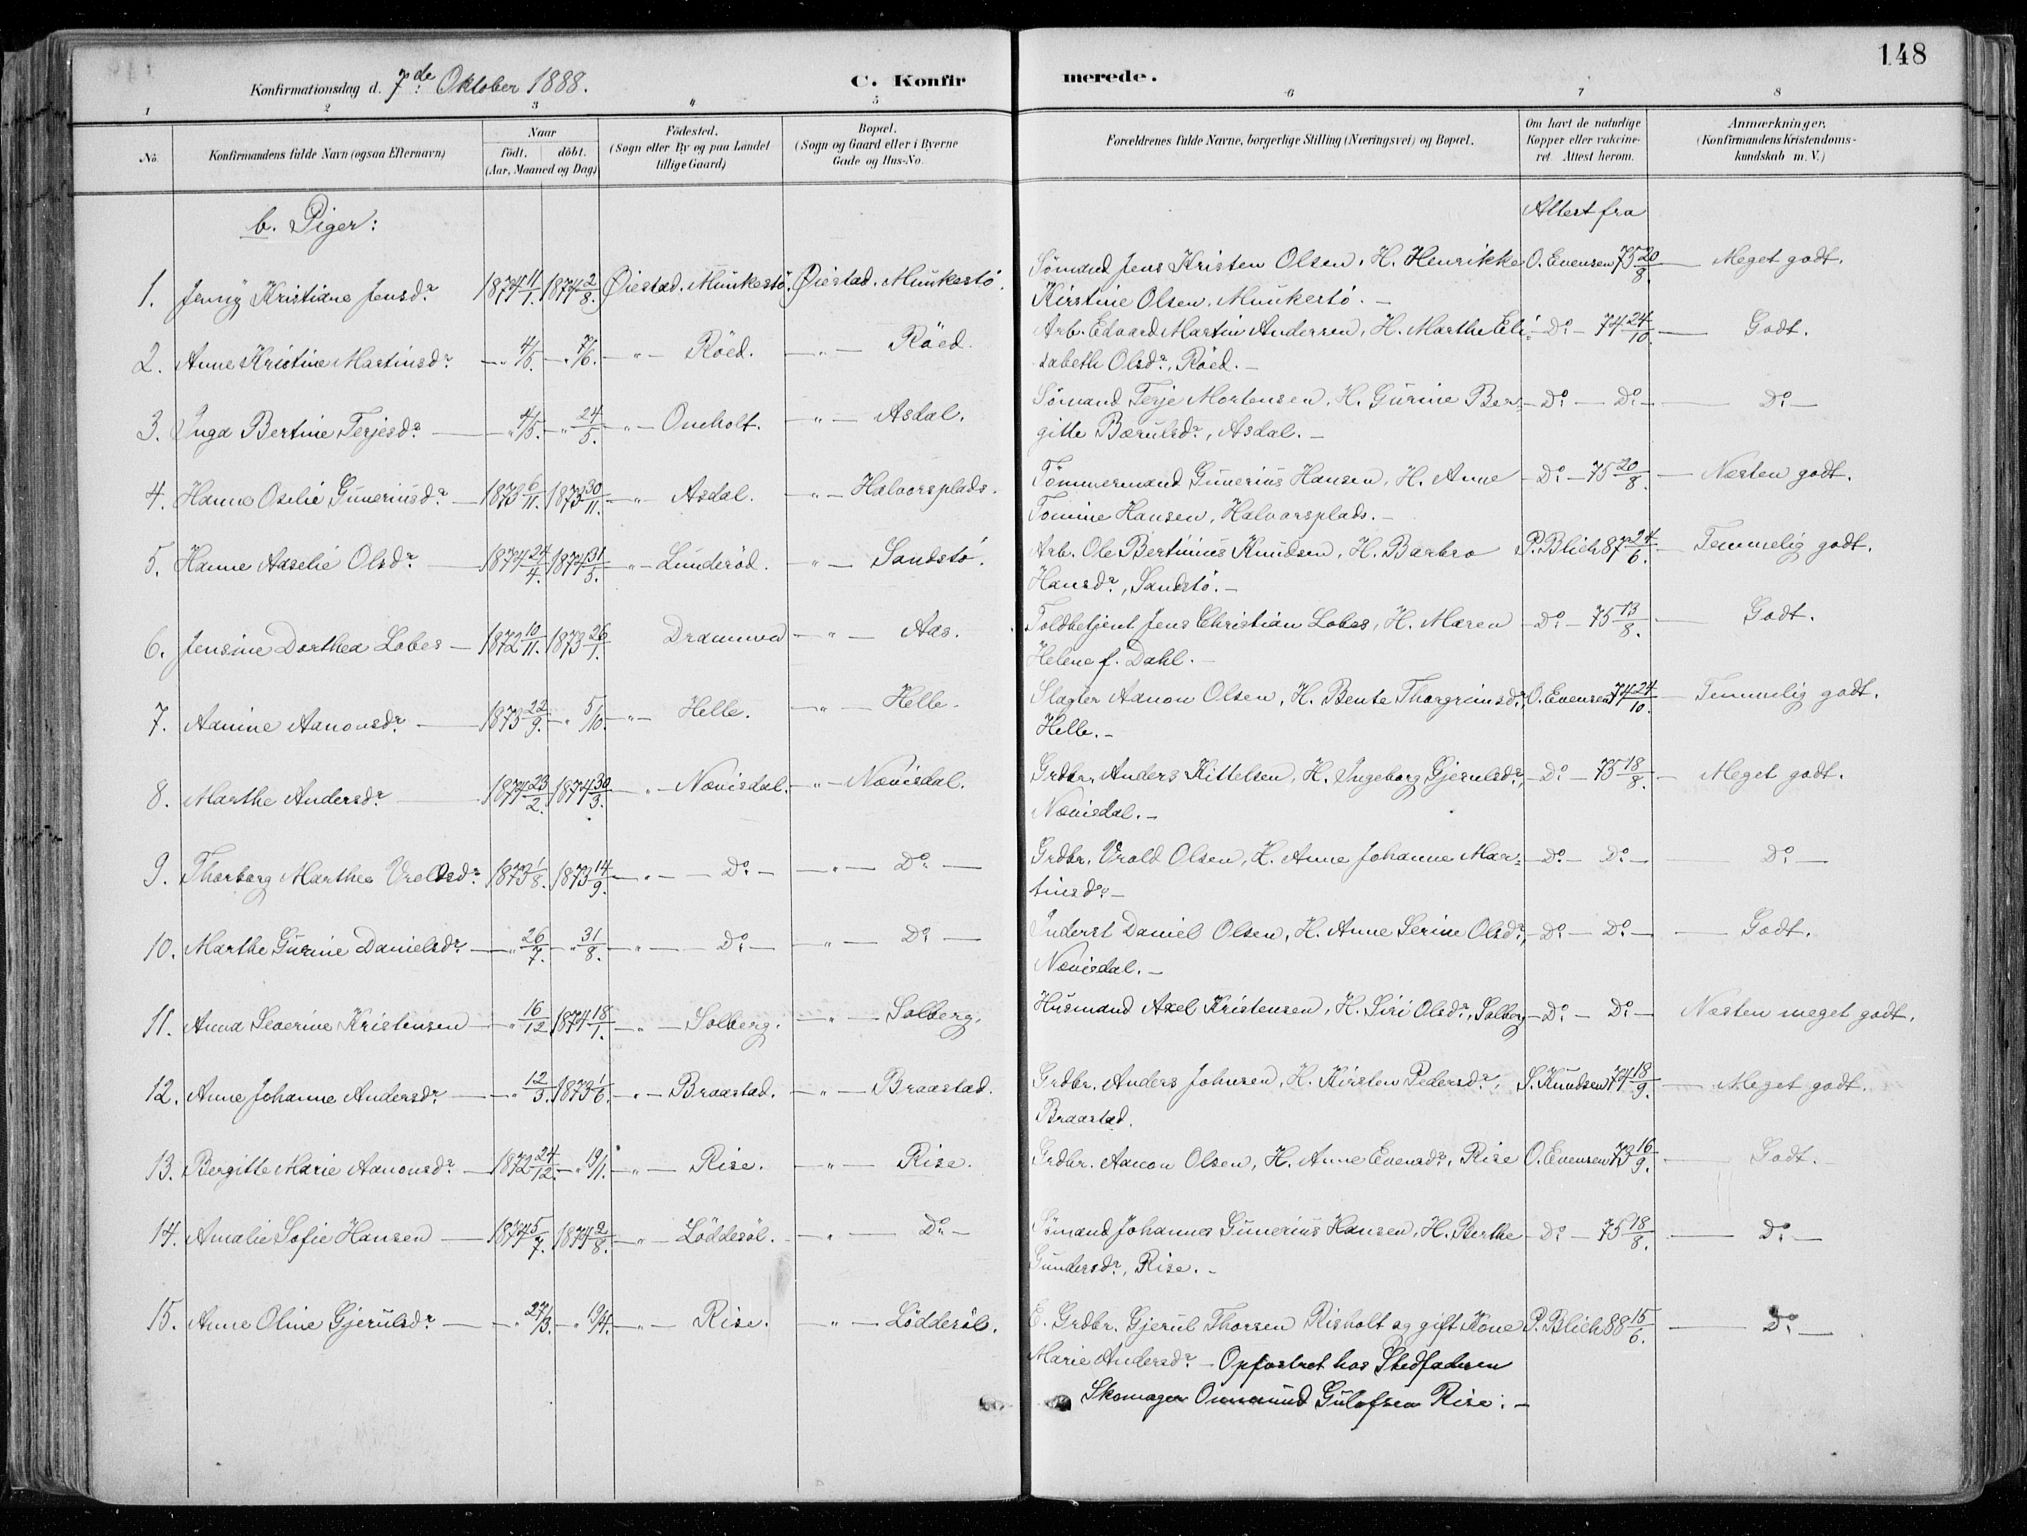 148
Konfirmationsdag d. 7de Oktober 1888. C. Konfirmerede.
1 2 3 4 5 6 7 8
No. Konfirmandens fulde Navn (ogsaa Efternavn) Naar födt. döbt. (Aar, Maaned og Dag) Födested. (Sogn eller By og paa Landet tillige Gaard) Bopæl. (Sogn og Gaard eller i Byerne Gade og Hus-No. Forældrenes fulde Navne, borgerlige Stilling (Næringsvei) og Bopæl. Om havt de naturlige Kopper eller vakcineret. Attest herom. Anmærkninger. (Konfirmandens Kristendomskundskab m. V.)
b. Piger: Attest fra
1. Jenny Kristiane Jensdr. 1874 11/1. 1874 2/8. Øiestad. Munkestö. Øiestad. Munkestö. Sömand Jens Kristen Olsen, H. Henrikke O. Evensen 75 20/8. — Meget godt.
Kirstine Olsen, Munkestö. —
2. Anne Kristine Martinsdr. — " 4/5. — " 7/6. — " — Röed. — " — Röed. Arb. Edvard Martin Andersen, H. Marthe Eli- — Do — 74 24/10. — Godt.
sabeth Olsdr., Röed. —
3. Inga Bertine Terjesdr. — " 4/5. — " 24/5. — " — Oneholt. — " — Asdal. Sömand Terje Mortensen, H. Gurine Ber- — Do — Do — — Do —
gitte Bærulsdr., Asdal. —
4. Hanne Oselie Guneriusdr. — 1873 6/11. 1873 30/11. — " — Asdal. — " — Halvorsplads. Tömmermand Gunerius Hansen, H. Anne — Do — 75 20/8. — Næsten godt.
Tomine Hansen, Halvorsplads. —
5. Hanne Aaselie Olsdr. 1874 24/4. 1874 31/5. — " — Lunderöd. — " — Sandstö. Arb. Ole Bertinius Knudsen, H. Barbro P. Blich 87 24/6. — Temmelig godt.
Hansdr., Sandstö. —
6. Jensine Dorthea Lobes — 1872 10/11. 1873 26/1. Drammen — " — Aas. Toldbetjent Jens Christian Lobes, H. Maren — Do — 75 13/8. — Godt.
Helene f. Dahl. —
7. Aanine Aanonsdr. — 1873 22/9. — " 5/10. — " — Helle. — " — Helle. Slagter Aanon Olsen, H. Bente Thorgrimsdr., O. Evensen 74 24/10. — Temmelig godt.
Helle. —
8. Marthe Andersdr. — 1874 23/2. 1874 30/3. — " — Nævisdal. — " — Nævisdal. Grdbr. Anders Kittelsen, H. Ingeborg Gjerulsdr., — Do — 75 18/8. — Meget godt.
Nævisdal. —
9. Thorborg Marthea Vroldsdr. 1873 1/8. 1873 14/9. — " — Do — — " — Do — Grdbr. Vrold Olsen, H. Anne Johanne Mar- — Do — Do — — Do —
tinsdr. —
10. Marthe Gurine Danielsdr. — " 26/7. — " 31/8. — " — Do — " — Do — Inderst Daniel Olsen, H. Anne Serine Olsdr., — Do — Do — — Godt.
Nævisdal. —
11. Anna Severine Kristensen — " 16/12. 1874 18/1. — " — Solberg. — " — Solberg. Husmand Axel Kristensen, H. Siri Olsdr., Solberg — Do — Do — Næsten meget godt.
12. Anne Johanne Andersdr. — " 12/3. 1873 1/6. — " — Braastad. — " — Braastad. Grdbr. Anders Johnsen, H. Kirsten Pedersdr., S. Knudsen 74 18/9. — Meget godt.
Braastad.
13. Bergitte Marie Aanonsdr. — 1872 24/12. — " 19/1. — " — Rise. — " — Rise. Grdbr. Aanon Olsen, H. Anne Evensdr., Rise O. Evensen 73 16/9. — Godt.
14. Amalie Sofie Hansen — 1874 5/7. 1874 2/8. — " — Löddesöl. — " — Do — Sömand Johannes Gunerius Hansen, H. Berthe — Do — 75 18/8. — Do —
Gundersdr., Rise. —
15. Anne Oline Gjerulsdr. — " 27/3. — " 19/4. — " — Rise. — " — Löddesöl. E. Grdbr. Gjerul Thorsen Risholt og gift Kone P. Blich 88 15/6. — Do —
Marie Andersdr. — Opfostret hos Stedfaderen
Skomager Onmund Gulofsen Rise. —